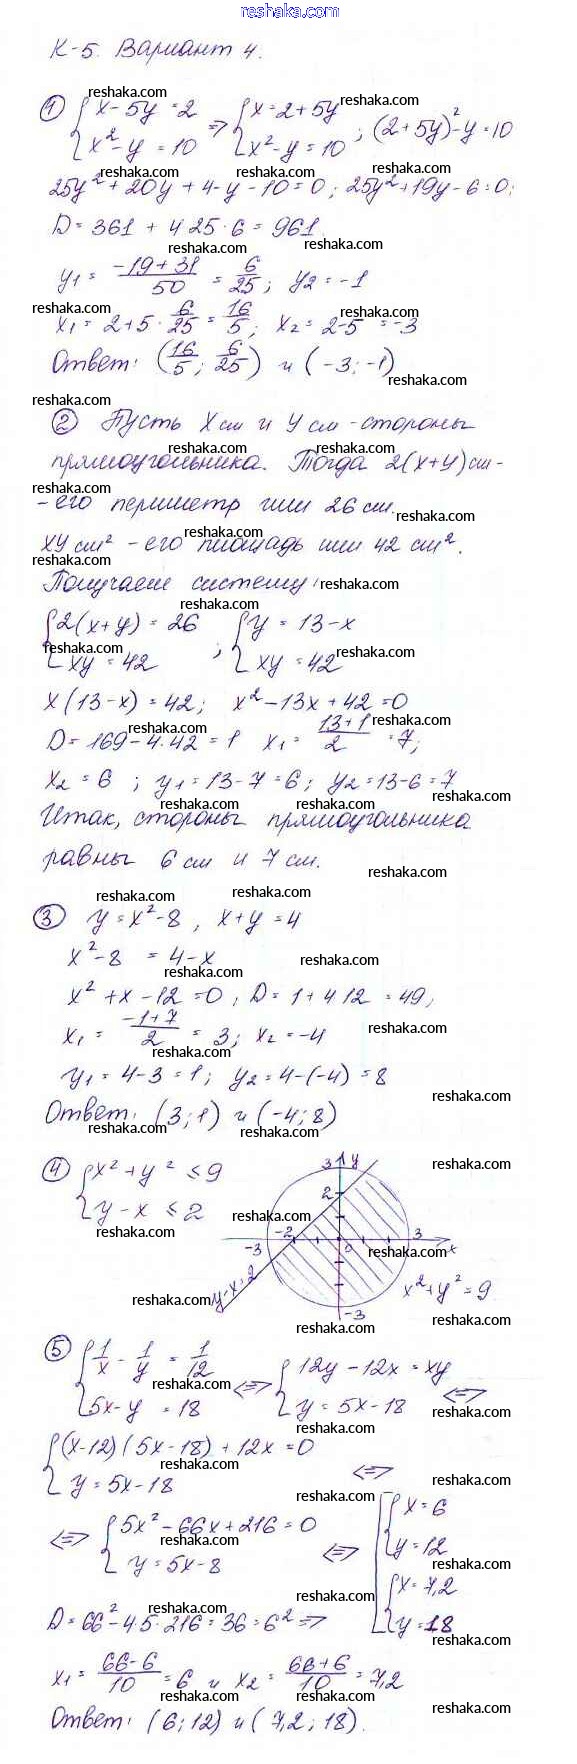 www.reshaka.com
К-5. Вариант 4.
① { x-5y=2 x²-y=10 => { x=2+5y x²-y=10 ; (2+5y)²-y=10
25y²+20y+4-y-10=0; 25y²+19y-6=0;
D=361+4·25·6=961.
y₁=(-19+31)/50=6/25; y₂=-1
x₁=2+5·6/25=16/5; x₂=2-5=-3
Ответ: (16/5; 6/25) и (-3;-1)
② Пусть x см и y см - стороны
прямоугольника. Тогда 2(x+y) см-
-его периметр или 26 см.
xy см² - его площадь или 42 см².
Получаем систему:
{ 2(x+y)=26 xy=42 ; { y=13-x xy=42
x(13-x)=42; x²-13x+42=0
D=169-4·42=1 x₁=(13+1)/2=7;
x₂=6; y₁=13-7=6; y₂=13-6=7
Итак, стороны прямоугольника
равны 6 см и 7 см.
③ y=x²-8, x+y=4
x²-8=4-x
x²+x-12=0, D=1+4·12=49,
x₁=(-1+7)/2=3; x₂=-4
y₁=4-3=1; y₂=4-(-4)=8
Ответ: (3;1) и (-4;8)
④ { x²+y²≤9 y-x≤2
3 y
2
-3 -2 0 3 x
y-x=2 x²+y²=9
-3
⑤ { 1/x-1/y=1/12 5x-y=18 <=> { 12y-12x=xy y=5x-18 <=>
{ (x-12)(5x-18)+12x=0 y=5x-18 <=>
<=> { 5x²-66x+216=0 y=5x-8 <=> [ { x=6 y=12 { x=7,2 y=18
D=66²-4·5·216=36=6² =>
x₁=(66-6)/10=6 и x₂=(66+6)/10=7,2
Ответ: (6;12) и (7,2;18).
reshaka.com